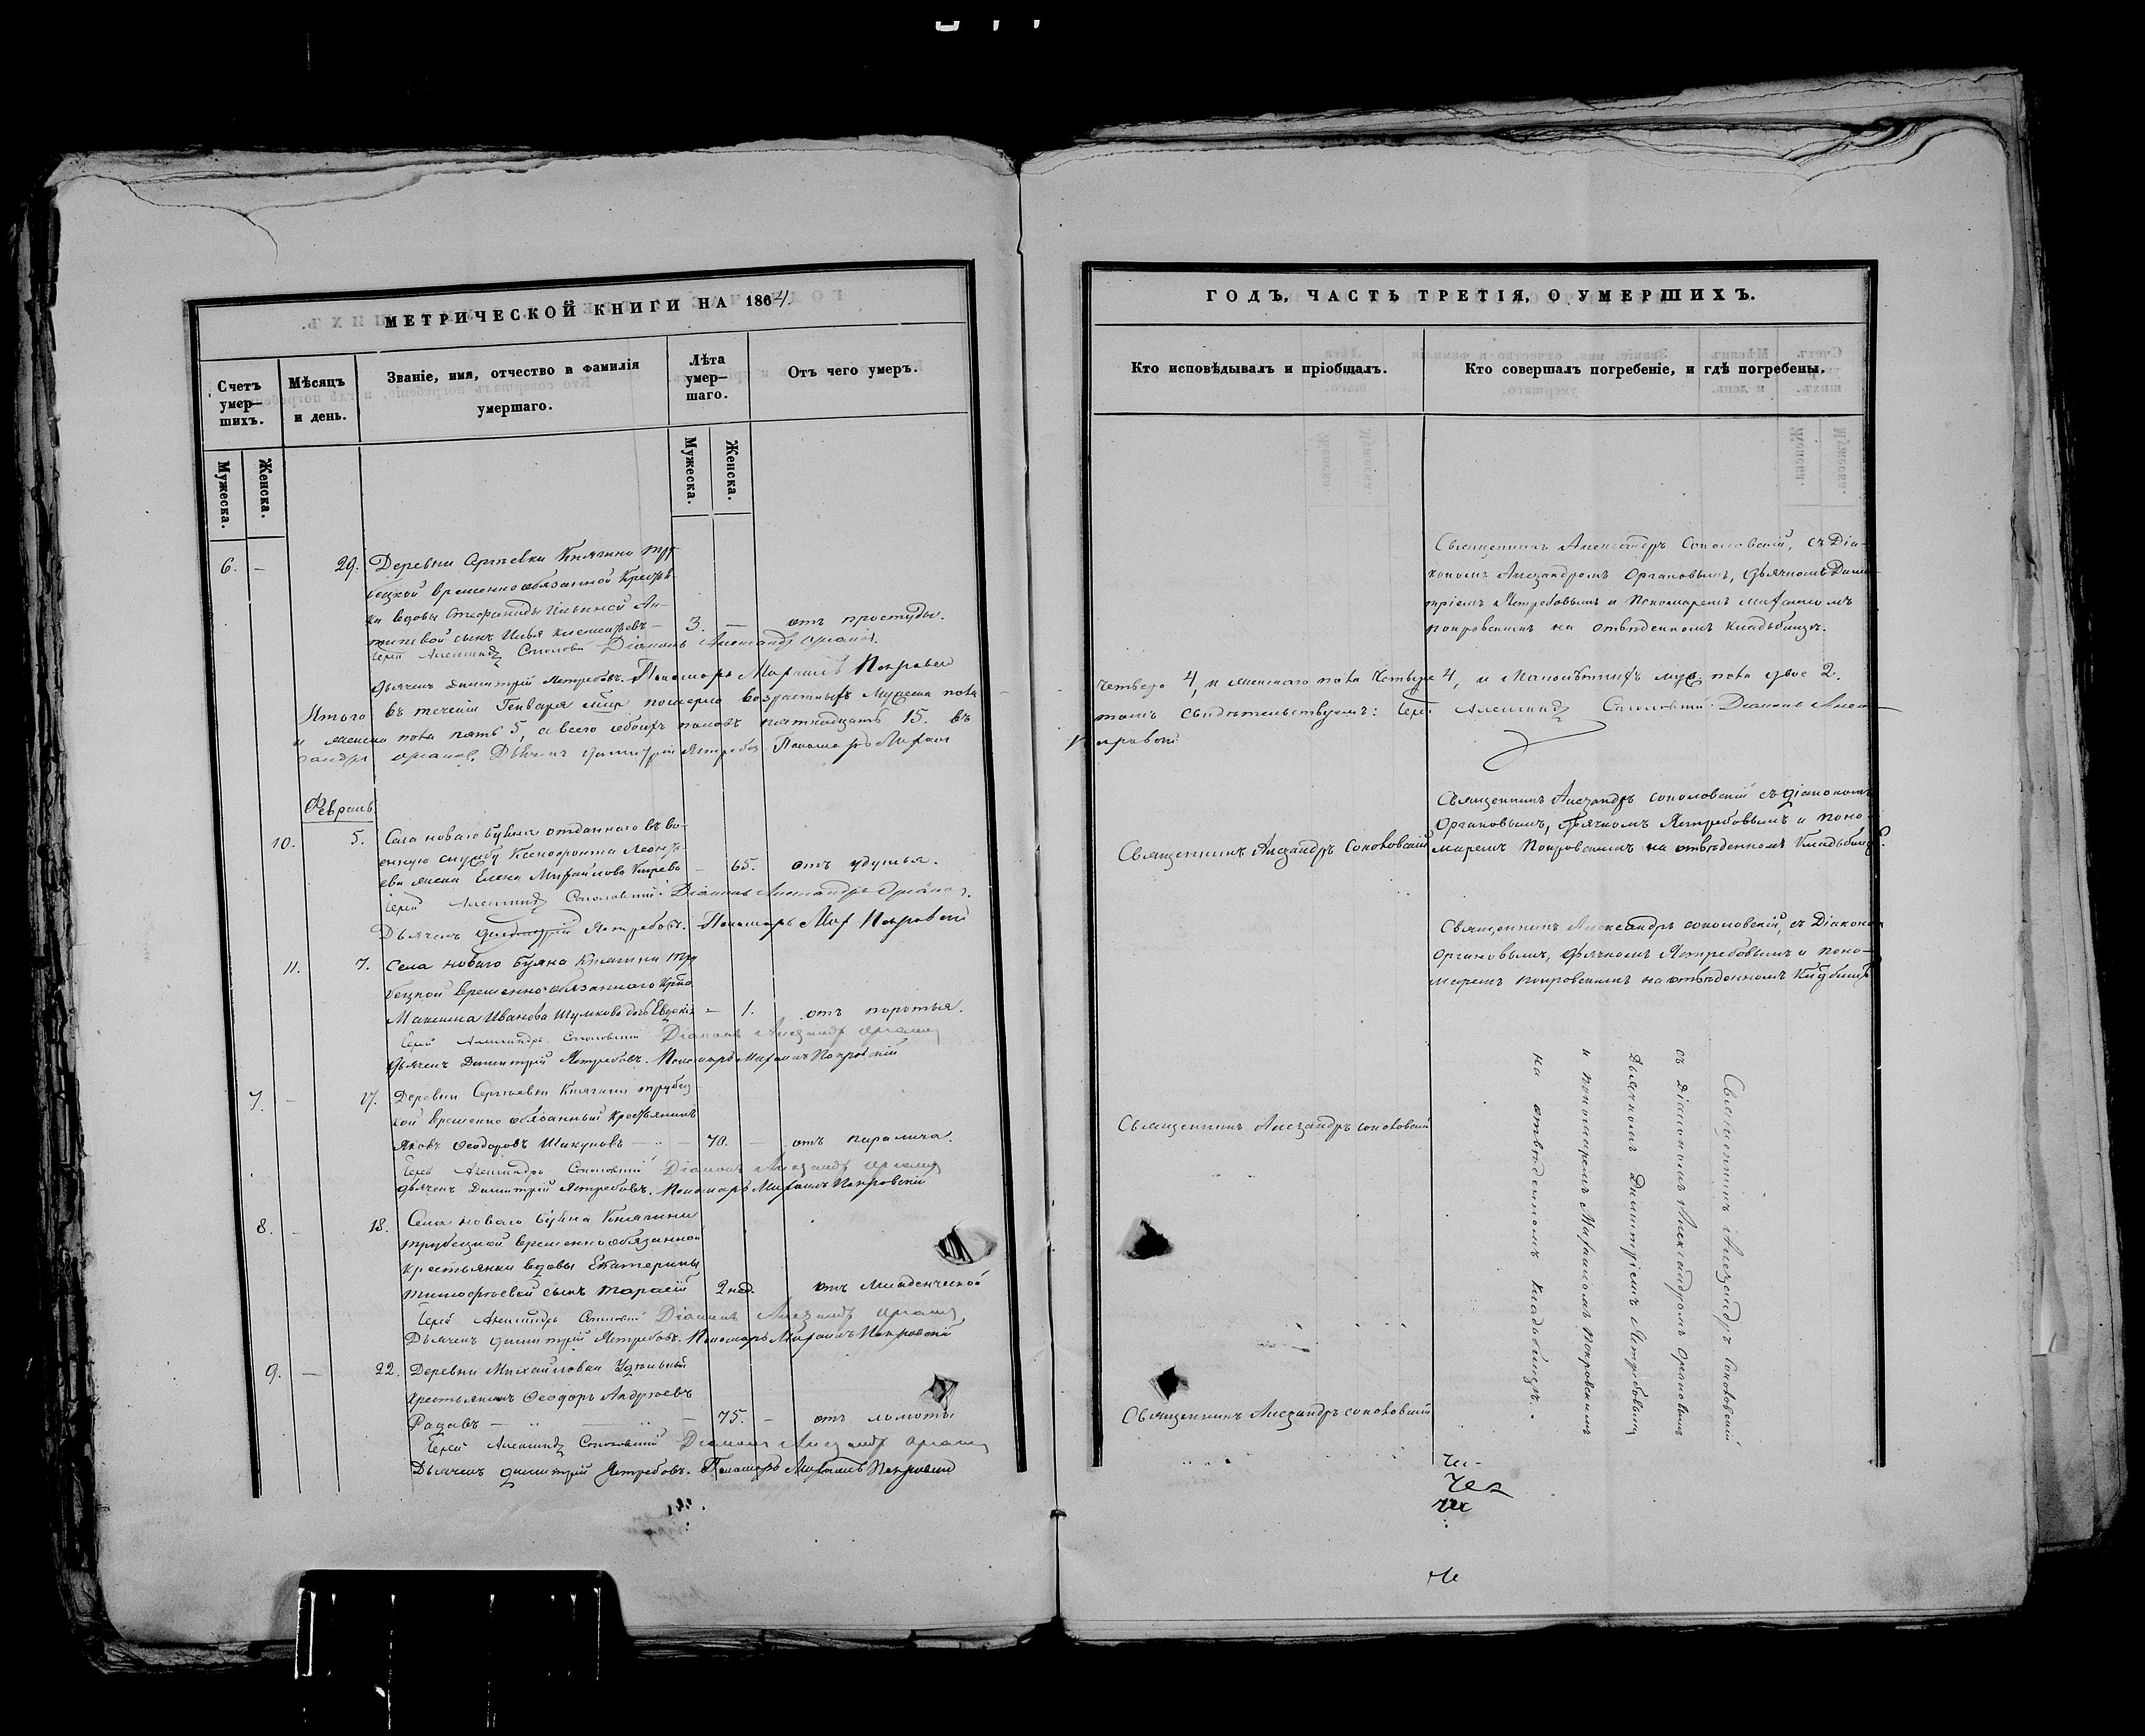 МЕТРИЧЕСКОЙ КНИГИ НА 1864.
Счетъ умер—шихъ.
Мѣсяцъ и день.
Званіе, имя, отчество и фамилія умершаго.
Лѣта умер—шаго.
Отъ чего умеръ.
Мужеска.
Женска.
Мужеска.
Женска.
6. — 29. Деревни Сергѣевки Княгини Тру-
бецкой временно обязанной Крестьян-
ки вдовы Стефаниды Ильиной
сынъ Илья Климентьевъ — 3. — отъ простуды.
Іерей Александръ Соколовскій Діаконъ Александръ Органовъ.
Дьячекъ Димитрій Ястребовъ. Пономарь Михаилъ Покровскій
Итого въ теченіи Генваря померло возрастныхъ мужеска пола
и женска пола пять 5, а всего обоихъ половъ пятнадцать 15. въ
сандръ Органовъ. Дьячекъ Димитрій Ястребовъ. Пономарь Михаилъ
Февраль
10. 5. Села новаго Буяна отданнаго въ во-
енную службу Ксенофонта Леонть-
ева жена Елена Михайлова — 65. отъ удушья.
Іерей Александръ Соколовскій. Діаконъ Александръ Органовъ.
Дьячекъ Димитрій Ястребовъ. Пономарь Мих Покровскій
11. 7. Села новаго Буяна Княгини Тру
бецкой временно обязаннаго
Максима Иванова Шумкова дочь — 1. отъ
Іерей Александръ Соколовскій Діаконъ Александръ Органовъ
Дьячекъ Димитрій Ястребовъ. Пономарь Михаилъ Покровскій
7. — 17. Деревни Сергѣевки Княгини Трубец
кой временно обязанный Крестьянинъ
Яковъ Ѳеодоровъ Шикуновъ — „ — 70. — отъ паралича.
Іерей Александръ Соколовскій Діаконъ Александръ Органовъ
Дьячекъ Димитрій Ястребовъ. Пономарь Михаилъ Покровскій
8. — 18. Села новаго Буяна Княгини
Трубецкой временно обязанной
крестьянки вдовы Екатерины
Тимофѣевой сынъ Тарасій 2 нед. отъ младенческой
Іерей Александръ Соколовскій Діаконъ Александръ Органовъ
Дьячекъ Димитрій Ястребовъ. Пономарь Михаилъ Покровскій
9. — 22. Деревни Михайловки Удѣльный
Крестьянинъ Ѳеодоръ Андреевъ
— „ — „ — 75. — отъ ломоты
Іерей Александръ Соколовскій Діаконъ Александръ Органовъ
Дьячекъ Димитрій Ястребовъ. Пономарь Михаилъ Покровскій
ГОДЪ, ЧАСТЬ ТРЕТІЯ, О УМЕРШИХЪ.
Кто исповѣдывалъ и пріобщалъ.
Кто совершалъ погребеніе, и гдѣ погребены.
Священникъ Александръ Соколовскій, съ Діа-
кономъ Александромъ Органовымъ, Дьячкомъ Дими-
тріемъ Ястребовымъ и Пономаремъ Михаиломъ
Покровскимъ на отведенномъ Кладбищѣ.
четверо 4, и женскаго пола Четыре 4, и Малолѣтнихъ муж. пола двое 2.
томъ свидѣтельствуемъ: Іерей Александръ Соколовскій. Діаконъ Алек-
Покровскій
Священникъ Александръ Соколовскій съ Діакономъ
Органовымъ, Дьячкомъ Ястребовымъ и Поно-
Священникъ Александръ Соколовскій
маремъ Покровскимъ на отведенномъ Кладбищѣ.
Священникъ Александръ Соколовскій, съ Діакономъ
Органовымъ, Дьячкомъ Ястребовымъ и Поно-
маремъ Покровскимъ на отведенномъ Кладбищѣ
Священникъ Александръ Соколовскій
Священникъ Александръ Соколовскій
съ Діакономъ Александромъ Органовымъ
Дьячкомъ Димитріемъ Ястребовымъ
и пономаремъ Михаиломъ Покровскимъ
на отведенномъ Кладбищѣ.
Священникъ Александръ Соколовскій